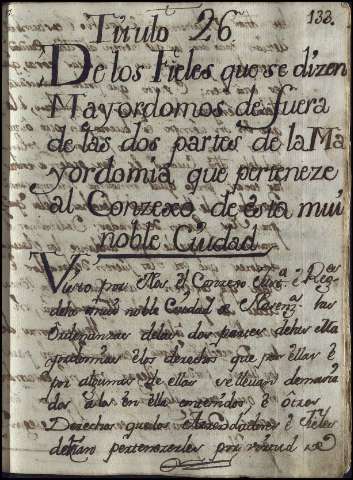 133.
Titulo 26
De los Fieles que se dizen
Mayordomos de fuera
de las dos partes de la Ma
yordomia que perteneze
al Conzexo de esta mui
noble Ciudad
Visto por Nos el Conzexo
noble Ciudad de has
Ordenanzas de las dos partes de
yordomias e los derechos que por ellas e
por algunas de ellas se llevan demasia
dos a los en ella contenidos e otros
Derechos que los Arrendadores e Fieles
pertenezerles por virtud de